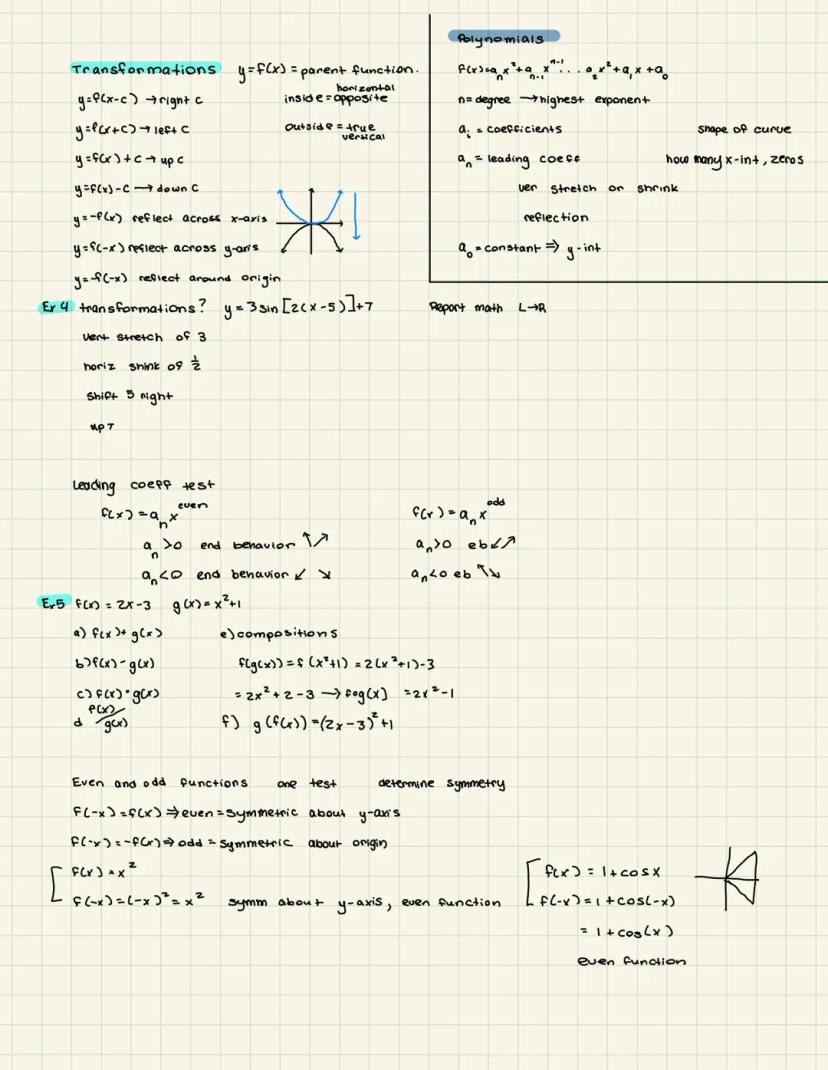 Transformations y=f(x) = parent function.
y=f(x-c) → right c
inside = opposite horizontal
y=f(x+c) → left c
outside = true vertical
y=f(x)+c → up c
y=f(x)-c → down c
y=-f(x) reflect across x-axis
y=f(-x) reflect across y-axis
y=-f(-x) reflect around origin
Polynomials
f(x)=aₙxⁿ+aₙ₋₁xⁿ⁻¹...a₂x²+a₁x+a₀
n=degree → highest exponent
aᵢ = coefficients shape of curve
aₙ = leading coeff how many x-int, zeros
ver stretch or shrink
reflection
a₀=constant ⇒ y-int
Ex 4 transformations? y = 3 sin [2(x-5)]+7 Report math L→R
vert stretch of 3
horiz shink of 1/2
shift 5 right
up 7
Leading coeff test
f(x)=aₙx^even f(x)=aₙx^odd
aₙ>0 end behavior ↖↗ aₙ>0 eb↙↗
aₙ<0 end behavior ↙ ↘ aₙ<0 eb ↖↘
Ex 5 f(x) = 2x-3 g(x)=x²+1
a) f(x)+g(x) e) compositions
b) f(x)-g(x) f(g(x))=f(x²+1) = 2(x²+1)-3
c) f(x)•g(x) =2x²+2-3 → fog(x) =2x²-1
d f(x)/g(x) f) g(f(x))=(2x-3)²+1
Even and odd functions one test determine symmetry
f(-x)=f(x) ⇒ even=symmetric about y-axis
f(-x)=-f(x) ⇒ odd=symmetric about origin
f(x)=x²
f(-x)=(-x)²=x² symm about y-axis, even function
f(x) = 1+cosx
f(-x)=1+cos(-x)
= 1+cos(x)
even function